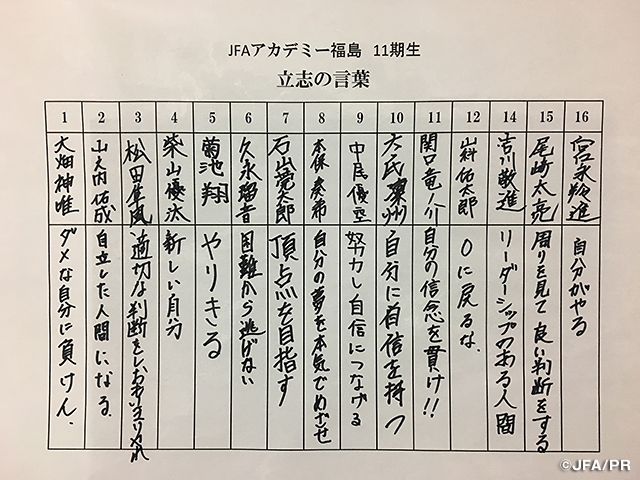 JFAアカデミー福島 11期生
立志の言葉
1 2 3 4 5 6 7 8 9 10 11 12 14 15 16
大畑神唯
ダメな自分に負けん.
山之内佑成
自立した人間になる.
松田隼風
適切な判断をし、おもいきりやれ
柴山優汰
新しい自分
菊池翔
やりきる
久永瑠音
困難から逃げない
石山莞太郎
頂点を目指す
自分の夢を本気でめざせ
努力し自信につなげる
自分に自信を持つ
関口竜ノ介
自分の信念を貫け!!
山科佑太郎
0に戻るな.
吉川敬進
リーダーシップのある人間
尾崎太亮
周りを見て良い判断をする
自分がやる
©JFA/PR